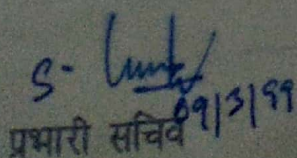 S-
09/3/99
प्रभारी सचिव